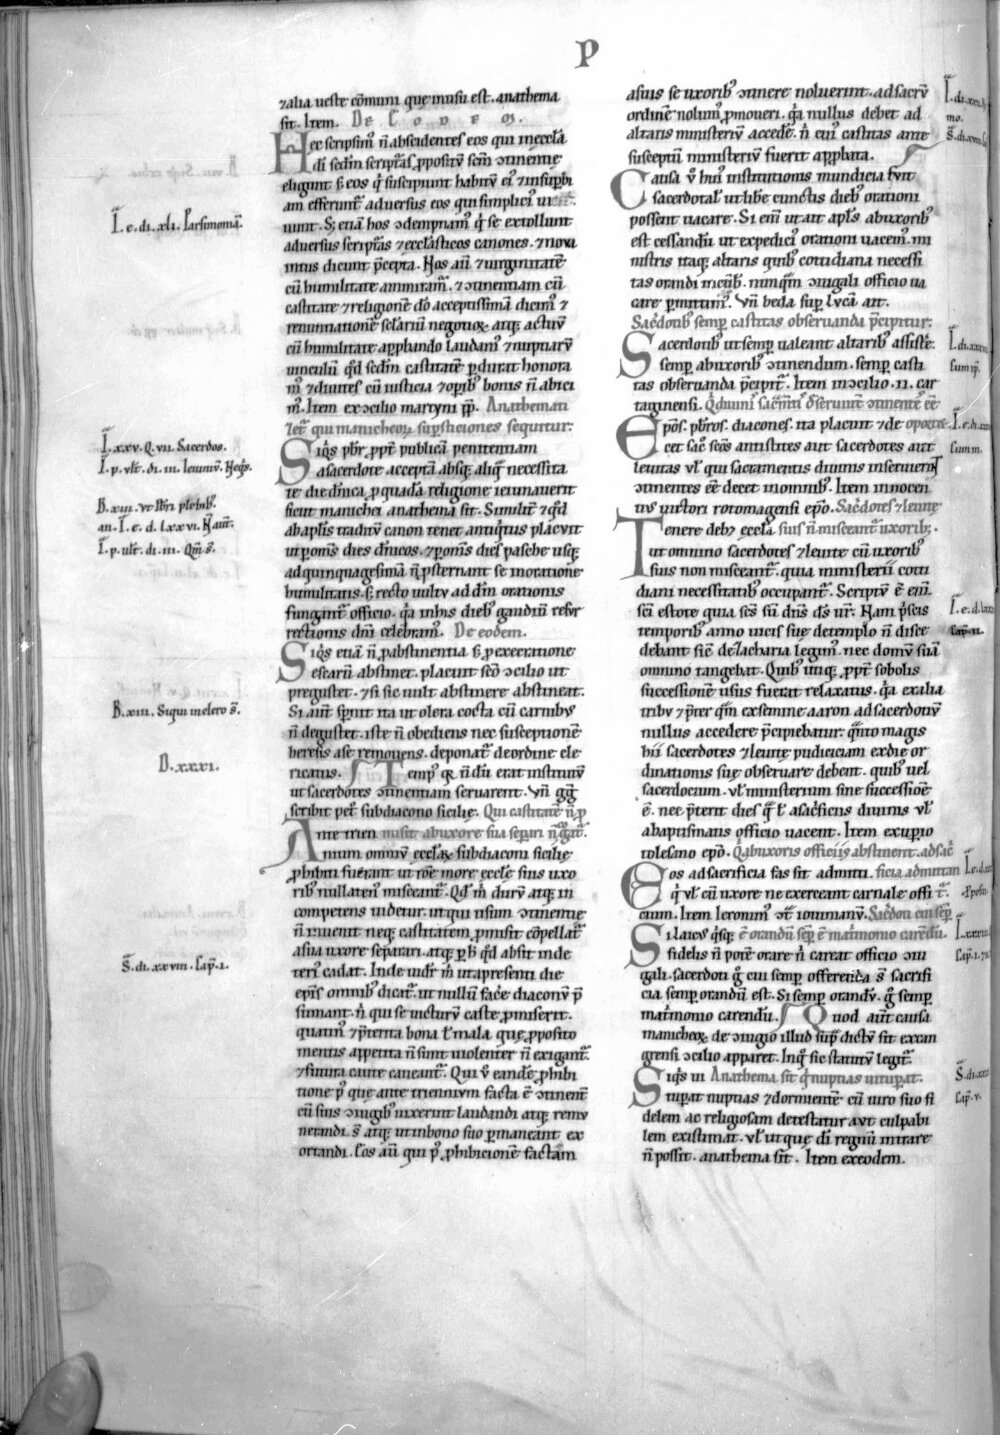 P
⁊alia ueste cōmuni que in usu est. anathema
sit. Item. De Eodem.
Hec scripsim᷒ ñ abscidentes eos qui in eccl̄a
di sc̄dm scripturas ꝓpositū sc̄m ɔtinentie
eligunt. s; eos q̇ suscipiunt habitū ei᷒ ⁊ insuꝑbi
am efferunt᷑ aduersus eos qui simplici᷒
uunt. S; etiā hos ɔdempnam᷒ q̇ se extollunt
aduersus scriptras ⁊ eccl̄asticos canones. ⁊ noua
intus dicunt p̄cepta. Nos aū ⁊ uirginitatē
cū humilitate ammiram᷒. ⁊ ɔtinentiam cū
castitate ⁊ religionē dō acceptissimā dicim᷒ ⁊
renuntiationē sc̄lariū negotioꝝ atq; actuū
cū humilitate apꝓbando laudam᷒ ⁊ nuptiarū
uinculū qd̄ sc̄dm castitatē ꝑdurat honora
m᷒ ⁊ diuites cū iusticia ⁊ oꝑib᷒ bonis ñ abici
m᷒. Item ex ɔcilio martyni pp̄. Anathemati
zet᷑ qui manicheoꝝ suꝑsticiones sequitur.
Siq̇s pb̄r ꝓpt̄ publicā penitentiam
a sacerdote acceptā absq; aliq̄ necessita
te die dn̄ica ꝓ quadā religione ieiunauerit
sicut manichei anathema sit. Similit̄ ⁊ qd̄
ab apl̄is traditū canon tenet antiq̇tus placuit
ut ꝑ om̄s dies dn̄icos. ⁊ ꝑ om̄s dies pasche usq;
ad quinquagesimā ñ ꝓsternant᷑ se in oratione
humilitatis. s; recto uultu ad dn̄m orationis
fungant᷑ officio. q̇a in his dieb᷒ gaudiū resur
rectionis dn̄i celebram᷒. De eodem.
Siq̇s etiā ñ ꝓ abstinentia s; ꝓ execratione
escarū abstinet. placuit sc̄o ɔcilio ut
pregustet. ⁊ si sic uult abstinere abstineat.
Si aūt spernit ita ut olera cocta cū carnib᷒
ñ degustet. iste ñ obediens nec susceptionē
heresis a se remouens. deponat᷑ de ordine cle
ricatus. Temp᷒ q̇a ñdū erat institutū
ut sacerdotes ɔtinentiam seruarent. Vn̄ gg̃
scribit pet᷑ subdiacono sicilie. Qui castitatē ñ ꝓ
Ante trien misit ab uxore sua seꝑari ñ cogat᷑.
nium omniū eccl̄aꝝ subdiaconi sicilie
ꝓhibiti fuerant ut rōe more eccl̄e suis uxo
rib᷒ nullaten᷒ misceant᷑. Qd̄ m̄ durū atq; in
competens uidetur. ut qui usum ɔtinentie
ñ inuenit neq; castitatem ꝓmisit cōpellat᷑
a sua uxore separari. atq; ꝑ h̄ qd̄ absit inde
teri᷒ cadat. Inde uidet᷑ m̄ ut a presenti die
ep̄is omnib᷒ dicat᷑. ut nullū facē diaconū p̄
sumant. ñ qui se uicturū caste ꝓmiserit.
quatin᷒ ⁊ p̄terita bona ł mala que ꝓposito
mentis appetita ñ sunt uiolenter ñ exigant᷑
⁊ futura caute caueant᷑. Qui u̇ eandē ꝓhibi
tione p᷒ que ante triennium facta ē ɔtinent᷑
cū suis ɔiugib᷒ uixerunt laudandi atq; remu
nerandi. s̄ atq; ut in bono suo ꝑmaneant ex
ortandi. Eos aū qui p᷒ ꝓhibicionē factam
a suis se uxorib᷒ ɔtinere noluerunt. ad sacrū
ordinē nolum᷒ ꝓmoueri. q̇a nullus debet ad
altaris ministeriū accedē. ñ cui᷒ castitas ante
susceptū ministeriū fuerit apꝓbata.
Causa u̇ hui᷒ institutionis mundicia fuit
sacerdotal᷑ ut libē cunctis dieb᷒ orationi
possent uacare. Si eni᷒ ut ait apl̄s ab uxorib᷒
est cessandū ut expedici᷒ orationi uacem᷒. mi
nistris itaq; altaris quib᷒ cottidiana necessi
tas orandi incūb᷑. nunq̄m ɔiugali officio ua
care ꝑmittim᷒. Vn̄ beda suꝑ lucā ait.
Sac̄dotib᷒ semꝑ castitas obseruanda p̄cipitur.
Sacerdotib᷒ ut semꝑ ualeant altarib᷒ assistē
semꝑ ab uxorib᷒ ɔtinendum. semꝑ casti
tas obseruanda p̄cipit᷑. Item in ɔcilio .ii. car
taginensi.
Ep̄os. pb̄ros. diacones. ita placuit ⁊ de
cet sac᷒ sc̄os antistites aut sacerdotes aut
leuitas ul̄ qui sacramentis diuinis inseruiunt
ɔtinentes eē decet in omnib᷒. Item innocen
tius uictori rotomagensi ep̄o. Sac̄dotes ⁊ leuite
Tenere deb; eccl̄a suis ñ misceant᷑ uxorib᷒.
ut omnino sacerdotes ⁊ leuite cū uxorib᷒
suis non misceant᷑. quia ministerii coti
diani necessitatib᷒ occupant᷑. Scriptū ē eni᷒.
sc̄i estote quia sc̄s sū dn̄s ds̄ ur̄. Nam p̄scis
temporib᷒ anno uicis sue de templo ñ disce
debant sic̄ de zacharia legim᷒. nec domū suā
omnino tangebat. Quib᷒ utiq; ꝓpt̄ sobolis
successionē usus fuerat relaxatus. q̇a ex alia
tribu ⁊ p̄ter q̄m ex semine aaron ad sacerdotiū
nullus accedere p̄cipiebatur. q̄nto magis
hii sacerdotes ⁊ leuite pudiciciam ex die or
dinationis sue obseruare debent. quib᷒ uel
sacerdocium. ul̄ ministerium sine successiōe
ē. nec p̄terit dies q̄ ł a sac̄ficiis diuinis ul̄
a baptismatis officio uacent. Item exuperio
tolesano ep̄o. Q̇ ab uxoris officiis abstinent. ad sac̄
Eos ad sacrificia fas sit admitti. ficia admittant᷑
q̇ ul̄ cū uxore ne exerceant carnale offi
cium. Item Ieronim᷒ ɔt̄ iouinianū.
Si laic᷒ q̇sq; ē orandū semꝑ ē mat᷑imonio carendū.
fidelis ñ potē orare ñ careat officio ɔiu
gali. sacerdoti ġ cui semꝑ offerenda s̄ sacrifi
cia semꝑ orandū est. Si semꝑ orandū. ġ semꝑ
matrimonio carendū. Quod aūt causa
manicheoꝝ de ɔiugio illud sup̄ dictū sit ex xan
grensi ɔcilio apparet. In q᷒ sic statutū legit᷑.
Siq̇s ui Anathema sit q̇ nuptias uituꝑat.
tuꝑat nuptias ⁊ dormientē cū uiro suo fi
delem ac religiosam detestatur aut culpabi
lem existimat. ul̄ ut que di᷒ regnū intrare
ñ possit. anathema sit. Item ex eodem.
I. e. di. xli. Parsimoniā.
I. xxv. Q. vii. Sacerdos.
I. p. ult̄. di. iii. Ieiuniū. Neq̇s.
B. xiii. Vt lib̄ri plebib᷒.
an. I. e. d. lxxvi. Nam̄.
I. p. ult̄. di. iii. Qm̄ s̄.
B. xiii. Siqui in clero s̄.
D. xxxi.
S. di. xxviii. Cap̄. i.